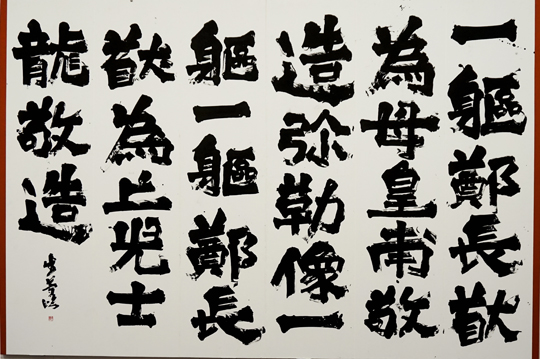 一軀鄭長猷
為母皇甫敬
造弥勒像一
軀一軀鄭長
猷為亡兒士
龍敬造